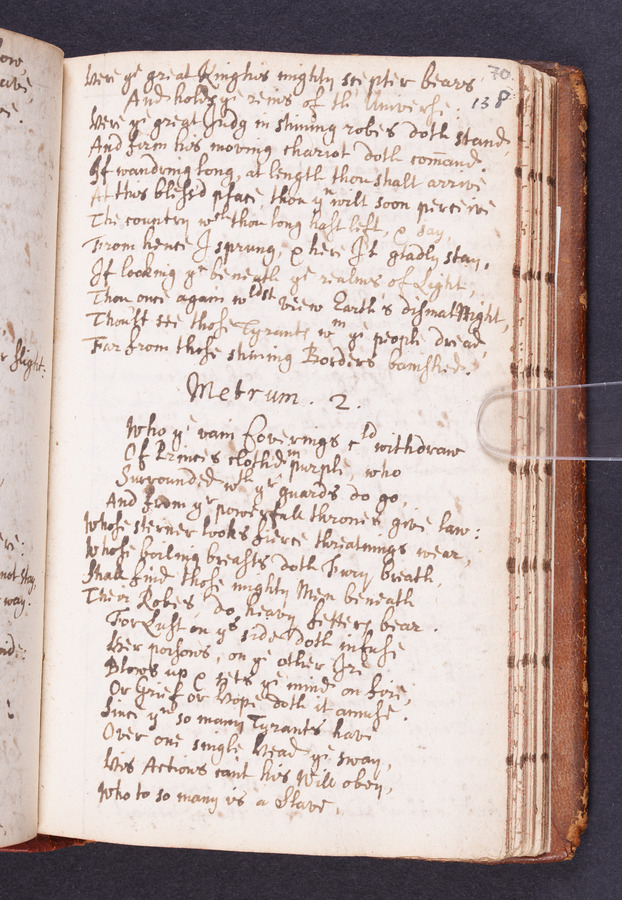 70
138
Here ye great King his mighty scepter bears
And holds ye reins of the Universe:
Here ye great Judg in shining robes doth stand,
And firm his moving chariot doth comand.
If wandring long, at length thou shalt arrive
At this bless'd place, thou yn wilt soon perceive
The country wch thou long hast left, & say,
From hence I sprung, & here I'l gladly stay,
If looking yn beneath ye realms of Light,
Thou once again woldst view Earth's dismal Night,
Thou'lt see those Tyrants wm ye people dread
Far from those shining Borders banished.
Metrum. 2.
Who ye vain Coverings cld withdraw
Of Princes clothd in purple, who
Surrounded wth yr guards do go
And from yr powerfull thrones give law:
Whose sterner looks fierce threatnings wear,
Whose boiling breasts doth Fury breath,
Shall find those mighty Men beneath
Their Robes do heavy fetters bear.
For Lust on ys side doth infuse
Her poisons, on ye other Ire
Blows up & sets ye mind on fire,
Or Grief or Hope doth it amuse.
Since yn so many Tyrants have
Over one single Head ye sway,
His Actions can't his Will obey,
Who to so many is a Slave.
r flight.
not stay,
way.